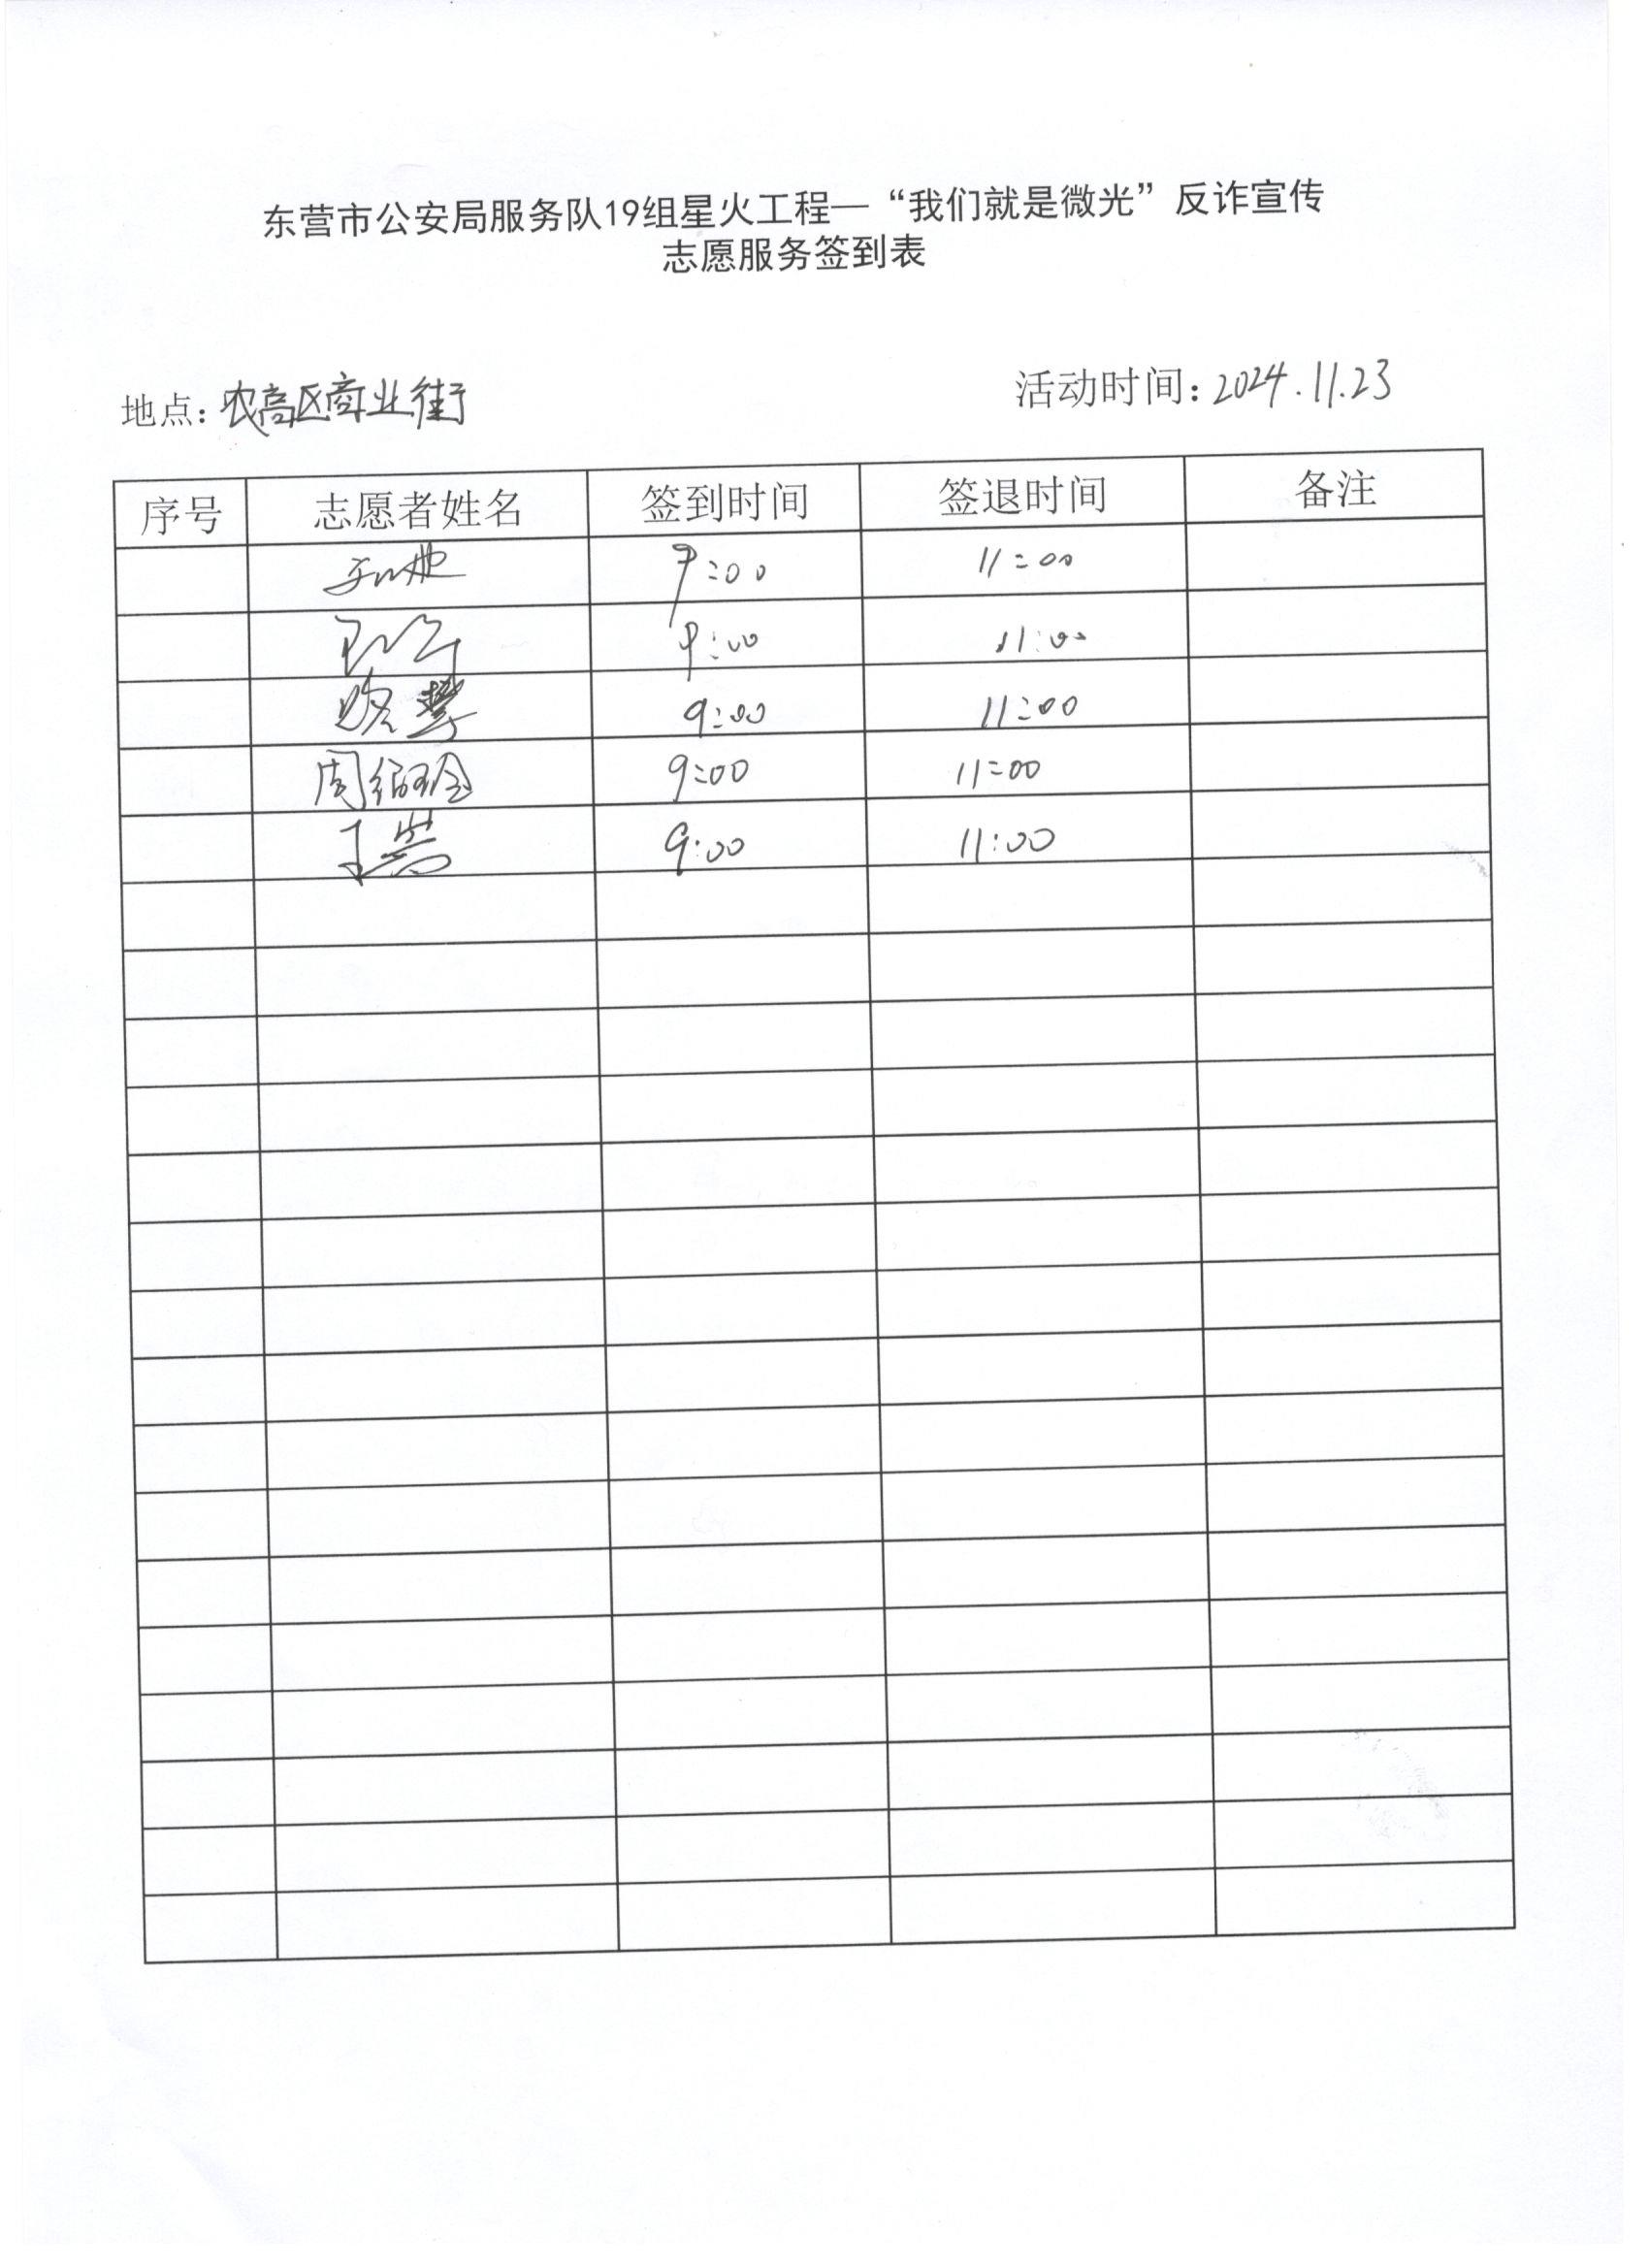 东营市公安局服务队19组星火工程—“我们就是微光”反诈宣传
志愿服务签到表
地点：农高区商业街 活动时间：2024.11.23
序号 志愿者姓名 签到时间 签退时间 备注
9:00 11:00
9:00 11:00
9:00 11:00
周 9:00 11:00
9:00 11:00